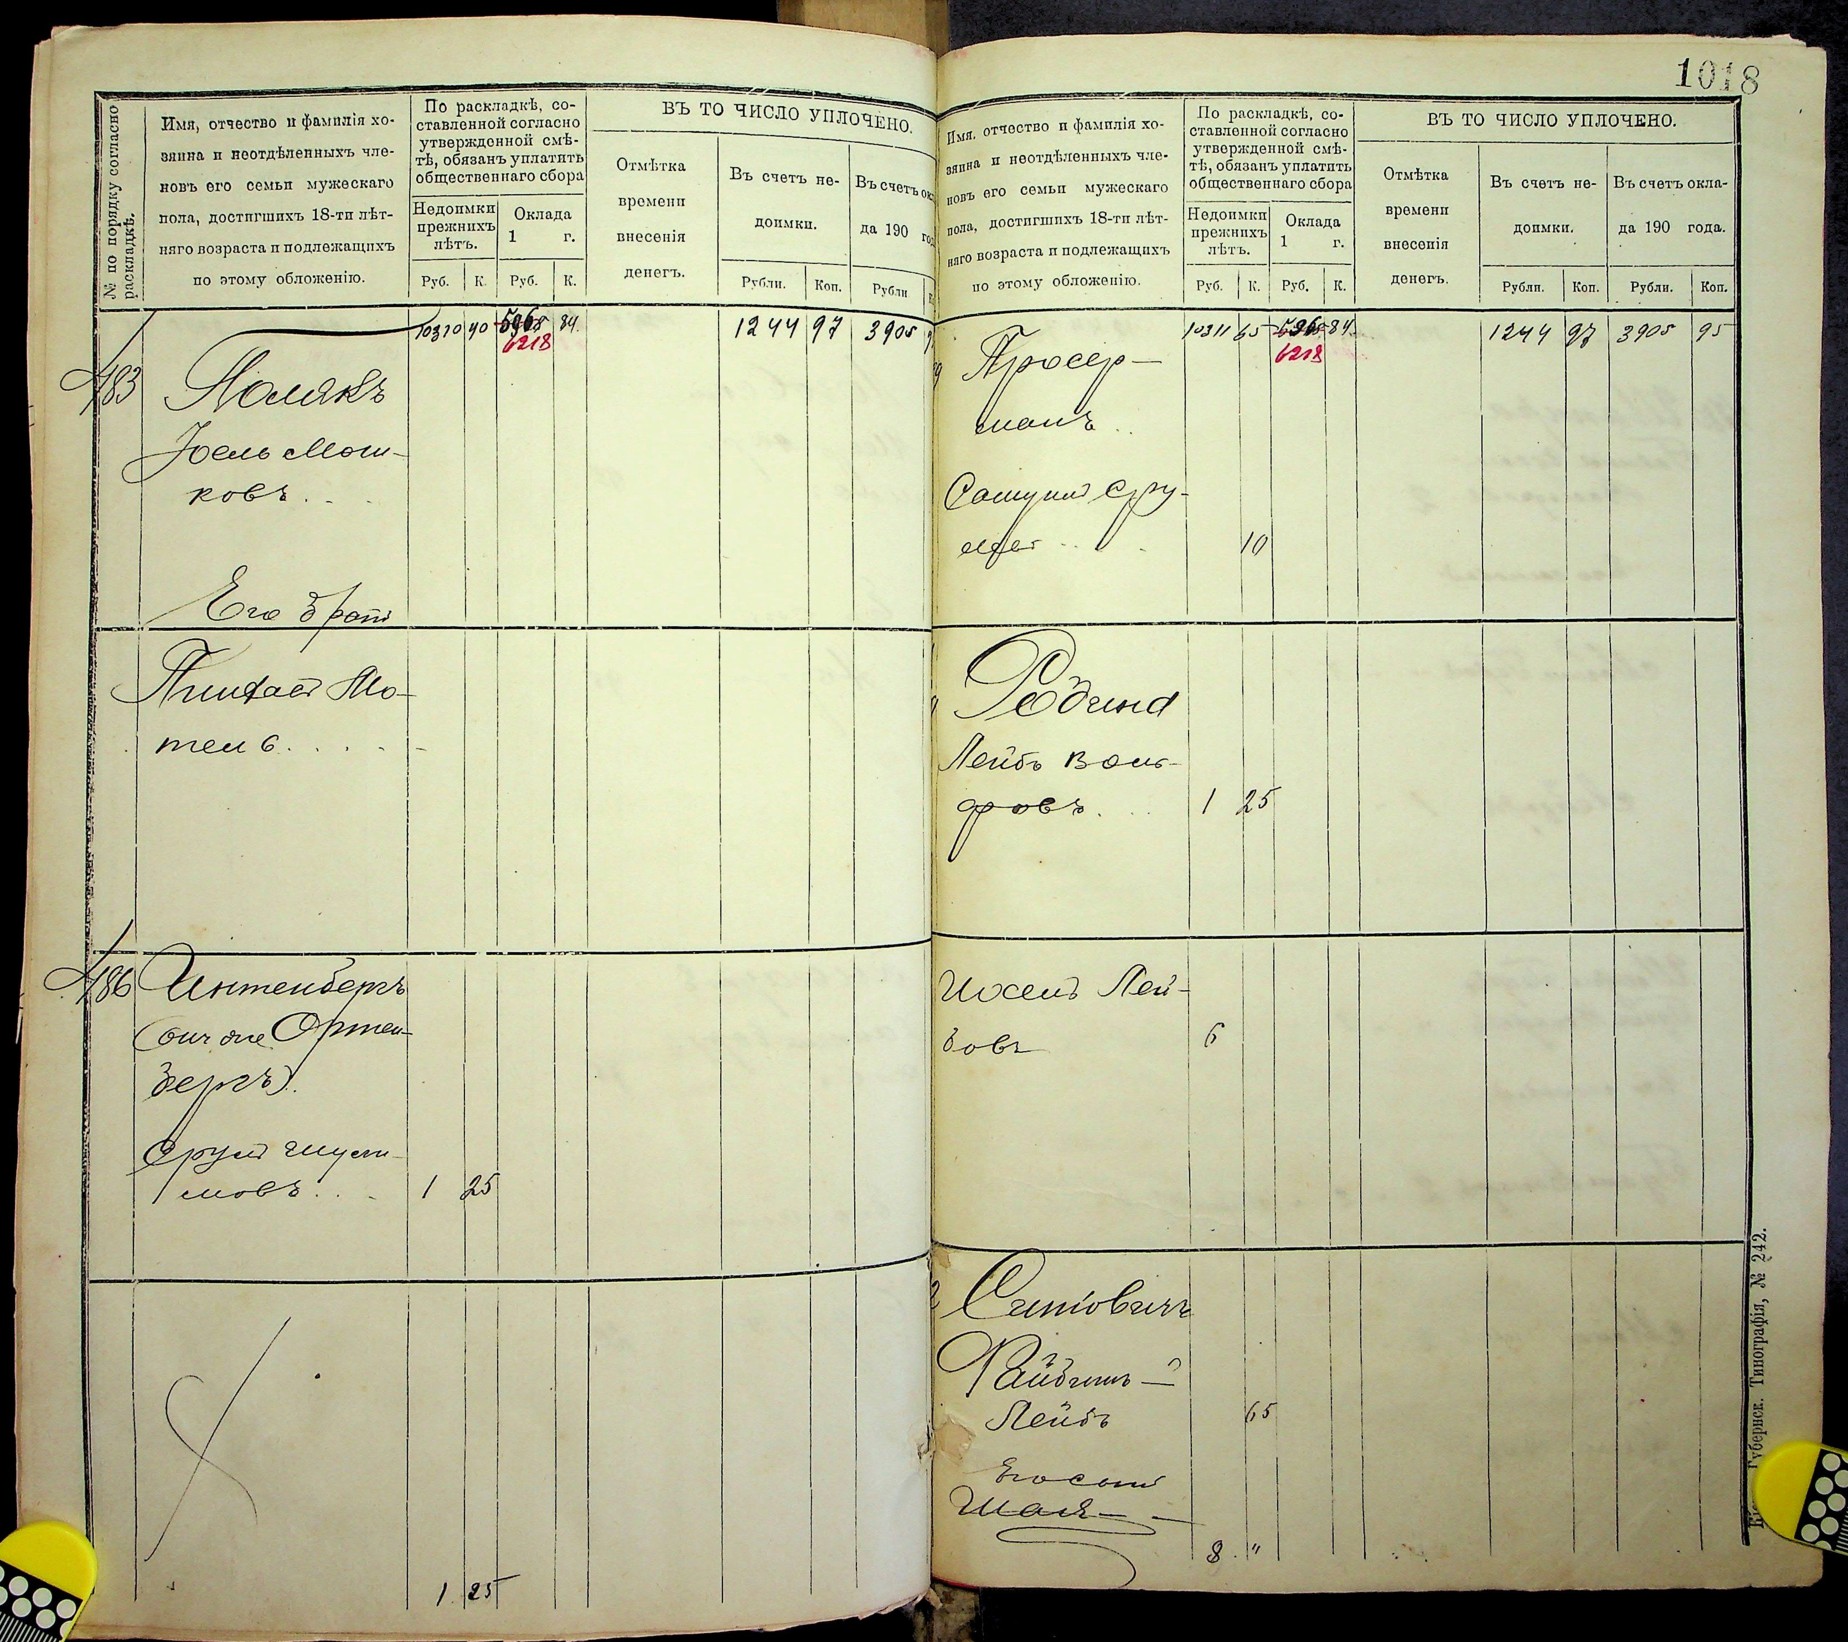 1018
№ по порядку согласно
раскладкѣ.
Имя, отчество и фамилія хо-
зяина и неотдѣленныхъ чле-
новъ его семьи мужескаго
пола, достигшихъ 18-ти лѣт-
няго возраста и подлежащихъ
по этому обложенію.
По раскладкѣ, со-
ставленной согласно
утвержденной смѣ-
тѣ, обязанъ уплатить
общественнаго сбора
Недоимки
прежнихъ
лѣтъ.
Оклада
1 г.
Руб. К. Руб. К.
ВЪ ТО ЧИСЛО УПЛОЧЕНО.
Отмѣтка
времени
внесенія
денегъ.
Въ счетъ не-
доимки.
Рубли. Коп.
Въ счетъ окл
да 190 год
Рубли
10310 40 5968 84 1244 97 3905
6218
483 Полякъ
Іоель Мош-
ковъ . . .
Его братъ
Пинхасъ Мо-
тель . . . . .
486 Интенбергъ
(онъ же Ортен-
бергъ).
Сруль
мовъ . . . 1 25
1 25
Имя, отчество и фамилія хо-
зяина и неотдѣленныхъ чле-
новъ его семьи мужескаго
пола, достигшихъ 18-ти лѣт-
няго возраста и подлежащихъ
по этому обложенію.
По раскладкѣ, со-
ставленной согласно
утвержденной смѣ-
тѣ, обязанъ уплатить
общественнаго сбора
Недоимки
прежнихъ
лѣтъ.
Оклада
1 г.
Руб. К. Руб. К.
ВЪ ТО ЧИСЛО УПЛОЧЕНО.
Отмѣтка
времени
внесенія
денегъ.
Въ счетъ не-
доимки.
Рубли. Коп.
Въ счетъ окла-
да 190 года.
Рубли. Коп.
10311 65 5968 84 1244 97 3905 95
6218
Просер-
манъ . .
Сру-
10
Родина
Лейбъ Воль-
фовъ . . . 1 25
Иосель Лей-
бовъ 6
Ситовичъ
Файбишъ —
Лейбъ 65
Его сынъ
Шая —
8 "
Губернск. Типографія, № 242.